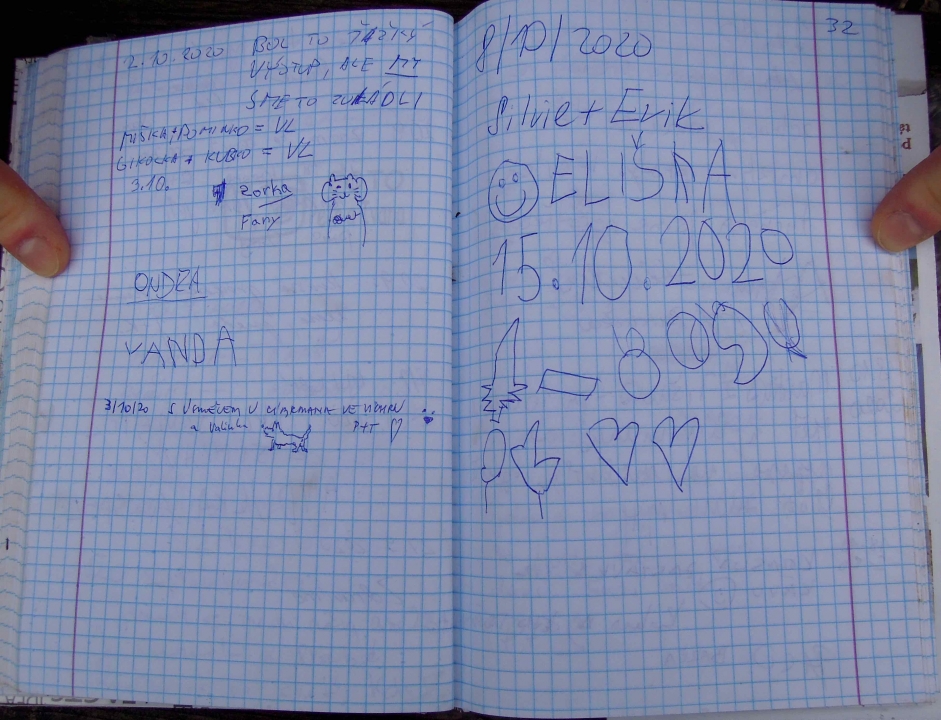 2.10.2020 BOL TO ŤAŽKÝ
VÝSTUP, ALE MY
SME TO ZVLÁDLI
MIŠKA + DOMINKO = VL
+ KUBKO = VL
3.10.
Zorka
Fany
ONDRA
VANDA
3/10/20 S ÚSMĚVEM V VE
a P+T
32
8/10/2020
Silvie + Erik
ELIŠKA
15.10.2020